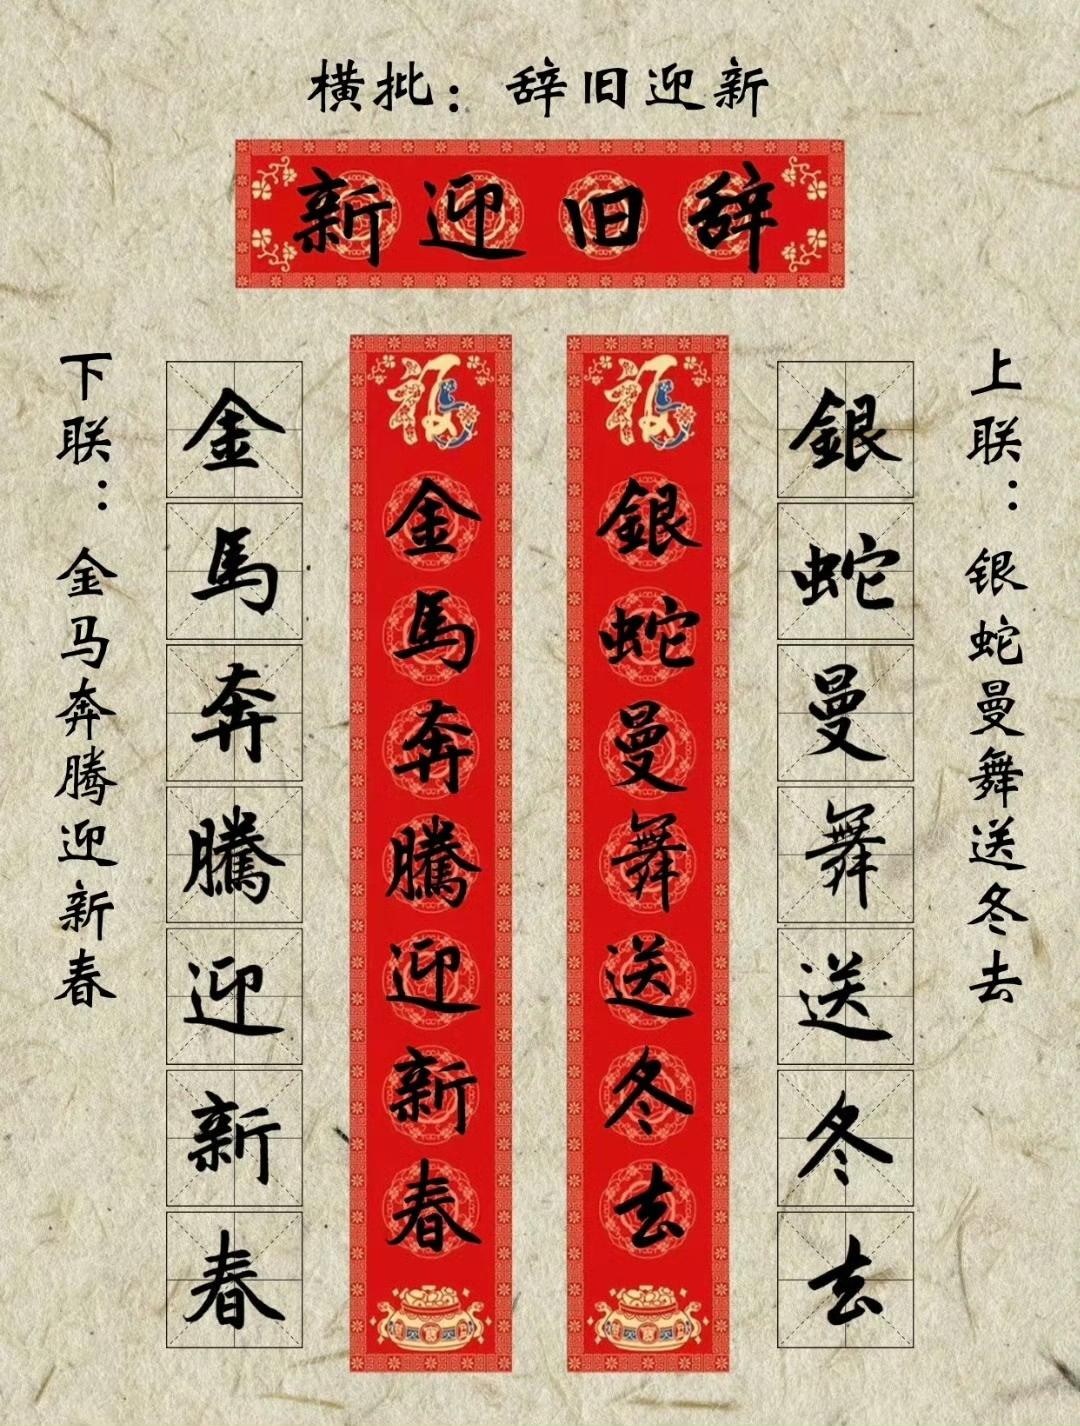 横批：辞旧迎新
新迎旧辞
上联：银蛇曼舞送冬去
銀蛇曼舞送冬去
福銀蛇曼舞送冬去
福金馬奔騰迎新春
金馬奔騰迎新春
下联：金马奔腾迎新春